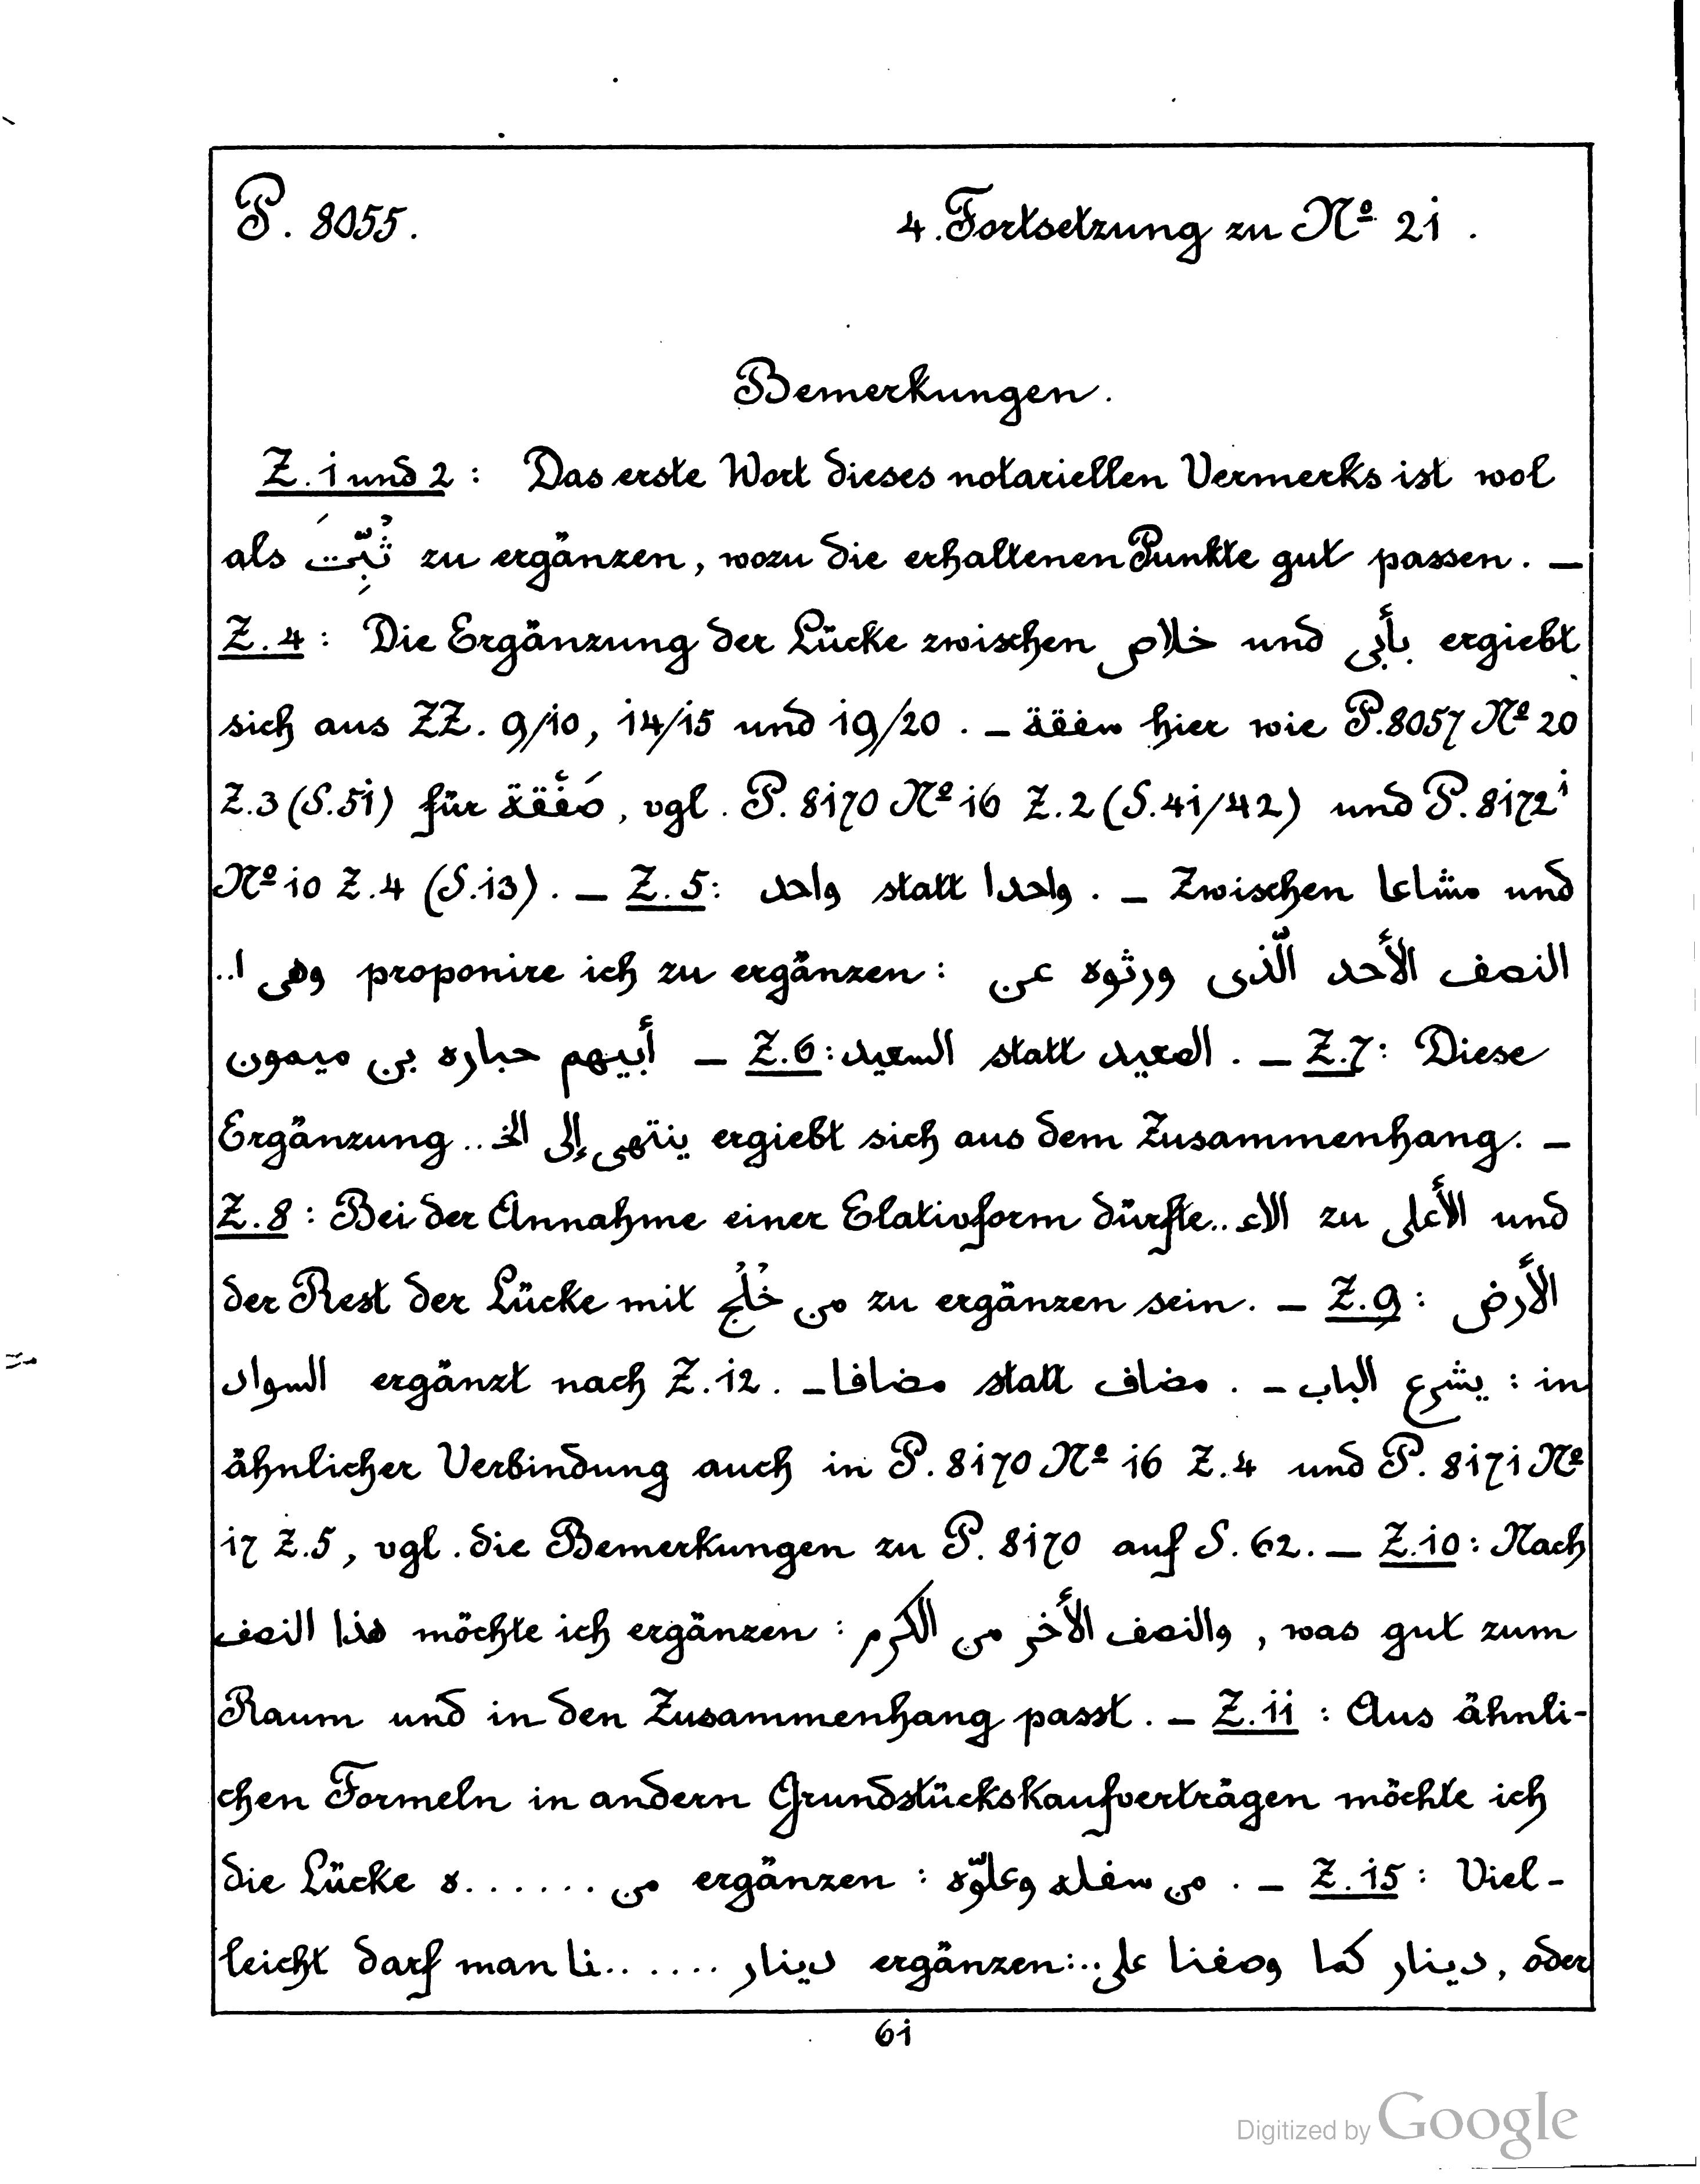 P. 8055. 4. Fortsetzung zu Nº 21.
Bemerkungen.
Z. 1 und 2: Das erste Wort dieses notariellen Vermerks ist wol
als ثُبِّتَ zu ergänzen, wozu die erhaltenen Punkte gut passen. —
Z. 4: Die Ergänzung der Lücke zwischen خلاص und بأبى ergiebt
sich aus ZZ. 9/10, 14/15 und 19/20. — سفقة hier wie P. 8057 Nº 20
Z. 3 (S. 51) für صَفْقة, vgl. P. 8170 Nº 16 Z. 2 (S. 41/42) und P. 8172¹
Nº 10 Z. 4 (S. 13). — Z. 5: واحد statt واحدا. — Zwischen مشاعا und
وهى ا.. proponire ich zu ergänzen: النصف الأحد الّذى ورثوه عن
أبيهم حباره بن ميمون — Z. 6: السعيد statt الصعيد. — Z. 7: Diese
Ergänzung ..ينتهى إلى الخ ergiebt sich aus dem Zusammenhang. —
Z. 8: Bei der Annahme einer Elativform dürfte ..الاع zu الأعلى und
der Rest der Lücke mit من خُلُج zu ergänzen sein. — Z. 9: الأرض
السواد ergänzt nach Z. 12. — مضافا statt مضاف. — يشرع الباب: in
ähnlicher Verbindung auch in P. 8170 Nº 16 Z. 4 und P. 8171 Nº
17 Z. 5, vgl. die Bemerkungen zu P. 8170 auf S. 62. — Z. 10: Nach
هذا النصف möchte ich ergänzen: والنصف الأخر من الكرم, was gut zum
Raum und in den Zusammenhang passt. — Z. 11: Aus ähnli-
chen Formeln in andern Grundstückskaufverträgen möchte ich
die Lücke من ......ه ergänzen: من سفله وعلوّه. — Z. 15: Viel-
leicht darf man دينار ......نا ergänzen: ..دينار كما وصفنا على, oder
61
Digitized by Google